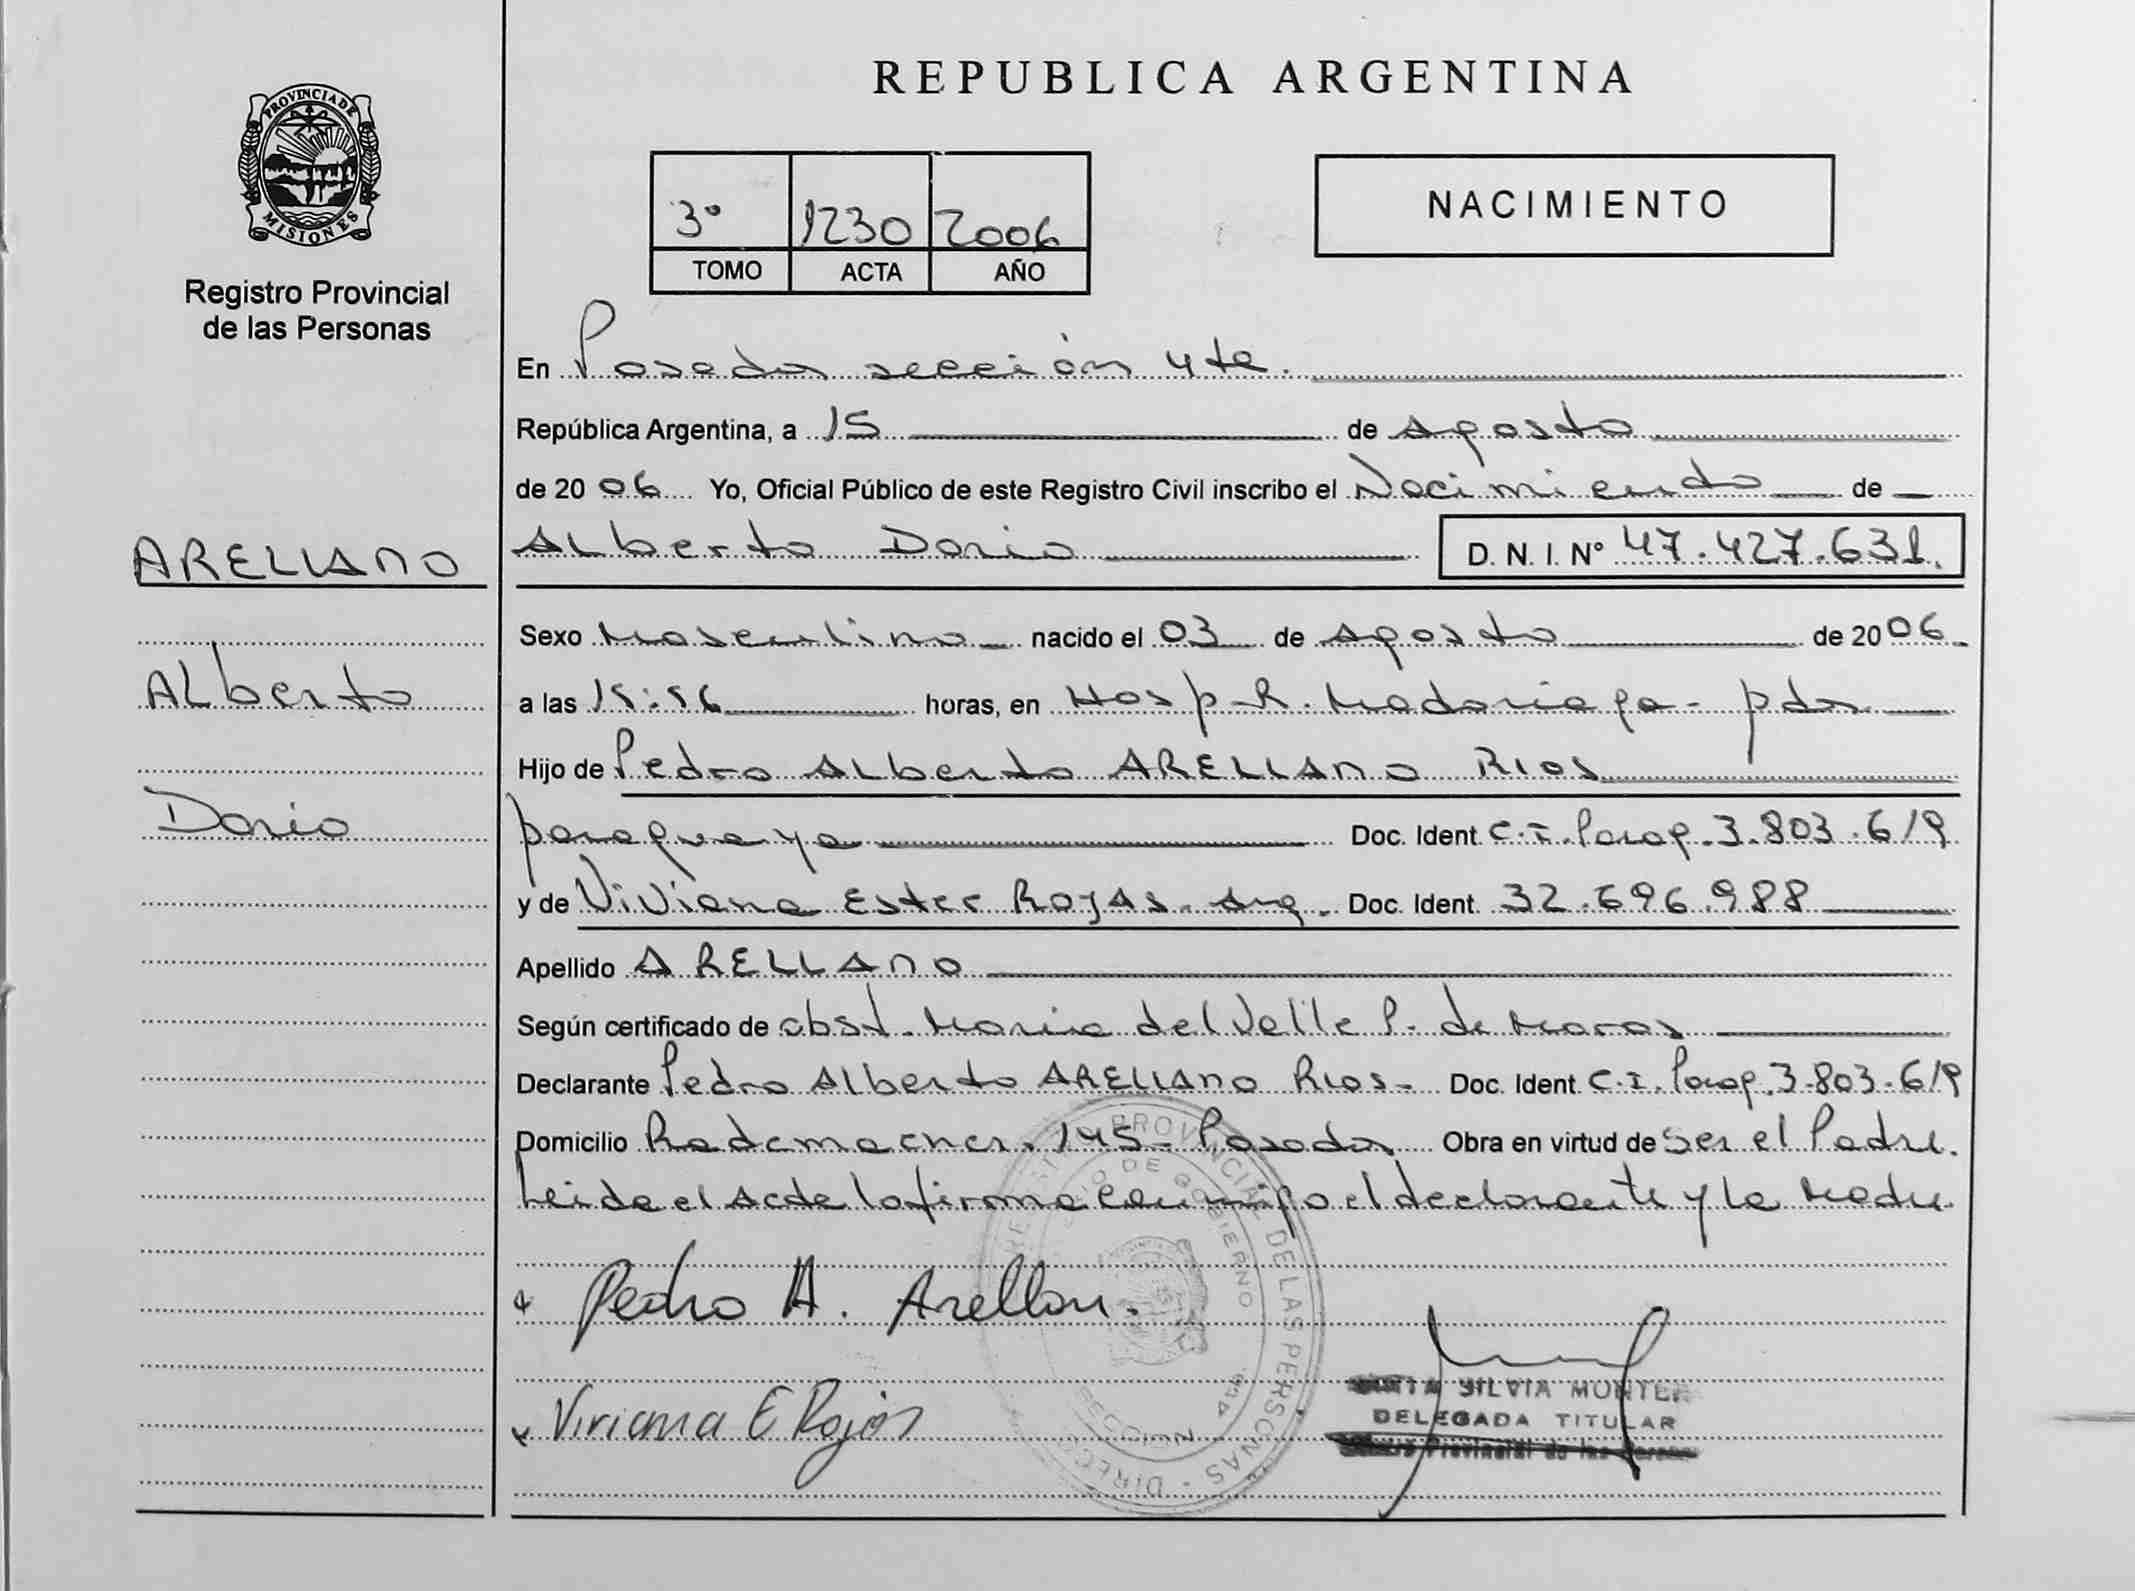 REPUBLICA ARGENTINA
PROVINCIA DE
MISIONES
Registro Provincial
de las Personas
3° 1230 2006
TOMO ACTA AÑO
NACIMIENTO
En Posadas sección 4ta.
República Argentina, a 15 de Agosto
de 2006 Yo, Oficial Público de este Registro Civil inscribo el Nacimiento de
ARELLANO
Alberto
Dario
Alberto Dario D. N. I. Nº 47.427.631.
Sexo Masculino nacido el 03 de Agosto de 2006
a las 15:56 horas, en Hosp. R. Madariaga - pdas
Hijo de Pedro Alberto ARELLANO RIOS
paraguaya Doc. Ident. C.I. Parag. 3.803.619
y de Viviana Ester ROJAS. Arg. Doc. Ident. 32.696.988
Apellido ARELLANO
Según certificado de obst. Maria del Valle P. de
Declarante Pedro Alberto ARELLANO RIOS - Doc. Ident. C.I. Parag. 3.803.619
Domicilio Rademacher. 145 - Posadas Obra en virtud de Ser el Padre.
Leida el Acta la firma conmigo el declarante y la Madre
Pedro A. Arellano.
Viviana E Rojas
SILVIA MONTE
DELEGADA TITULAR
Provincial de las
PROVINCIAL DE LAS PERSONAS
DE GOBIERNO
SECCION 4ta